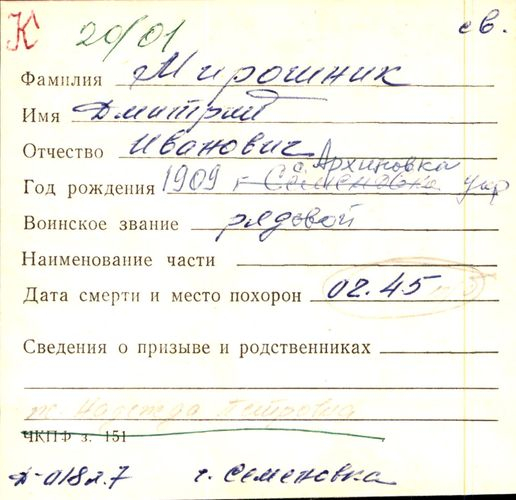 К 20/01 св.
Фамилия Мирошник
Имя Дмитрий
Отчество Иванович
с Архиповка
Год рождения 1909 г Семеновка укр
Воинское звание рядовой
Наименование части
Дата смерти и место похорон 02.45
Сведения о призыве и родственниках
ж. Надежда Петровна
ЧКПФ з. 151
Д-018 л.7 с. Семеновка